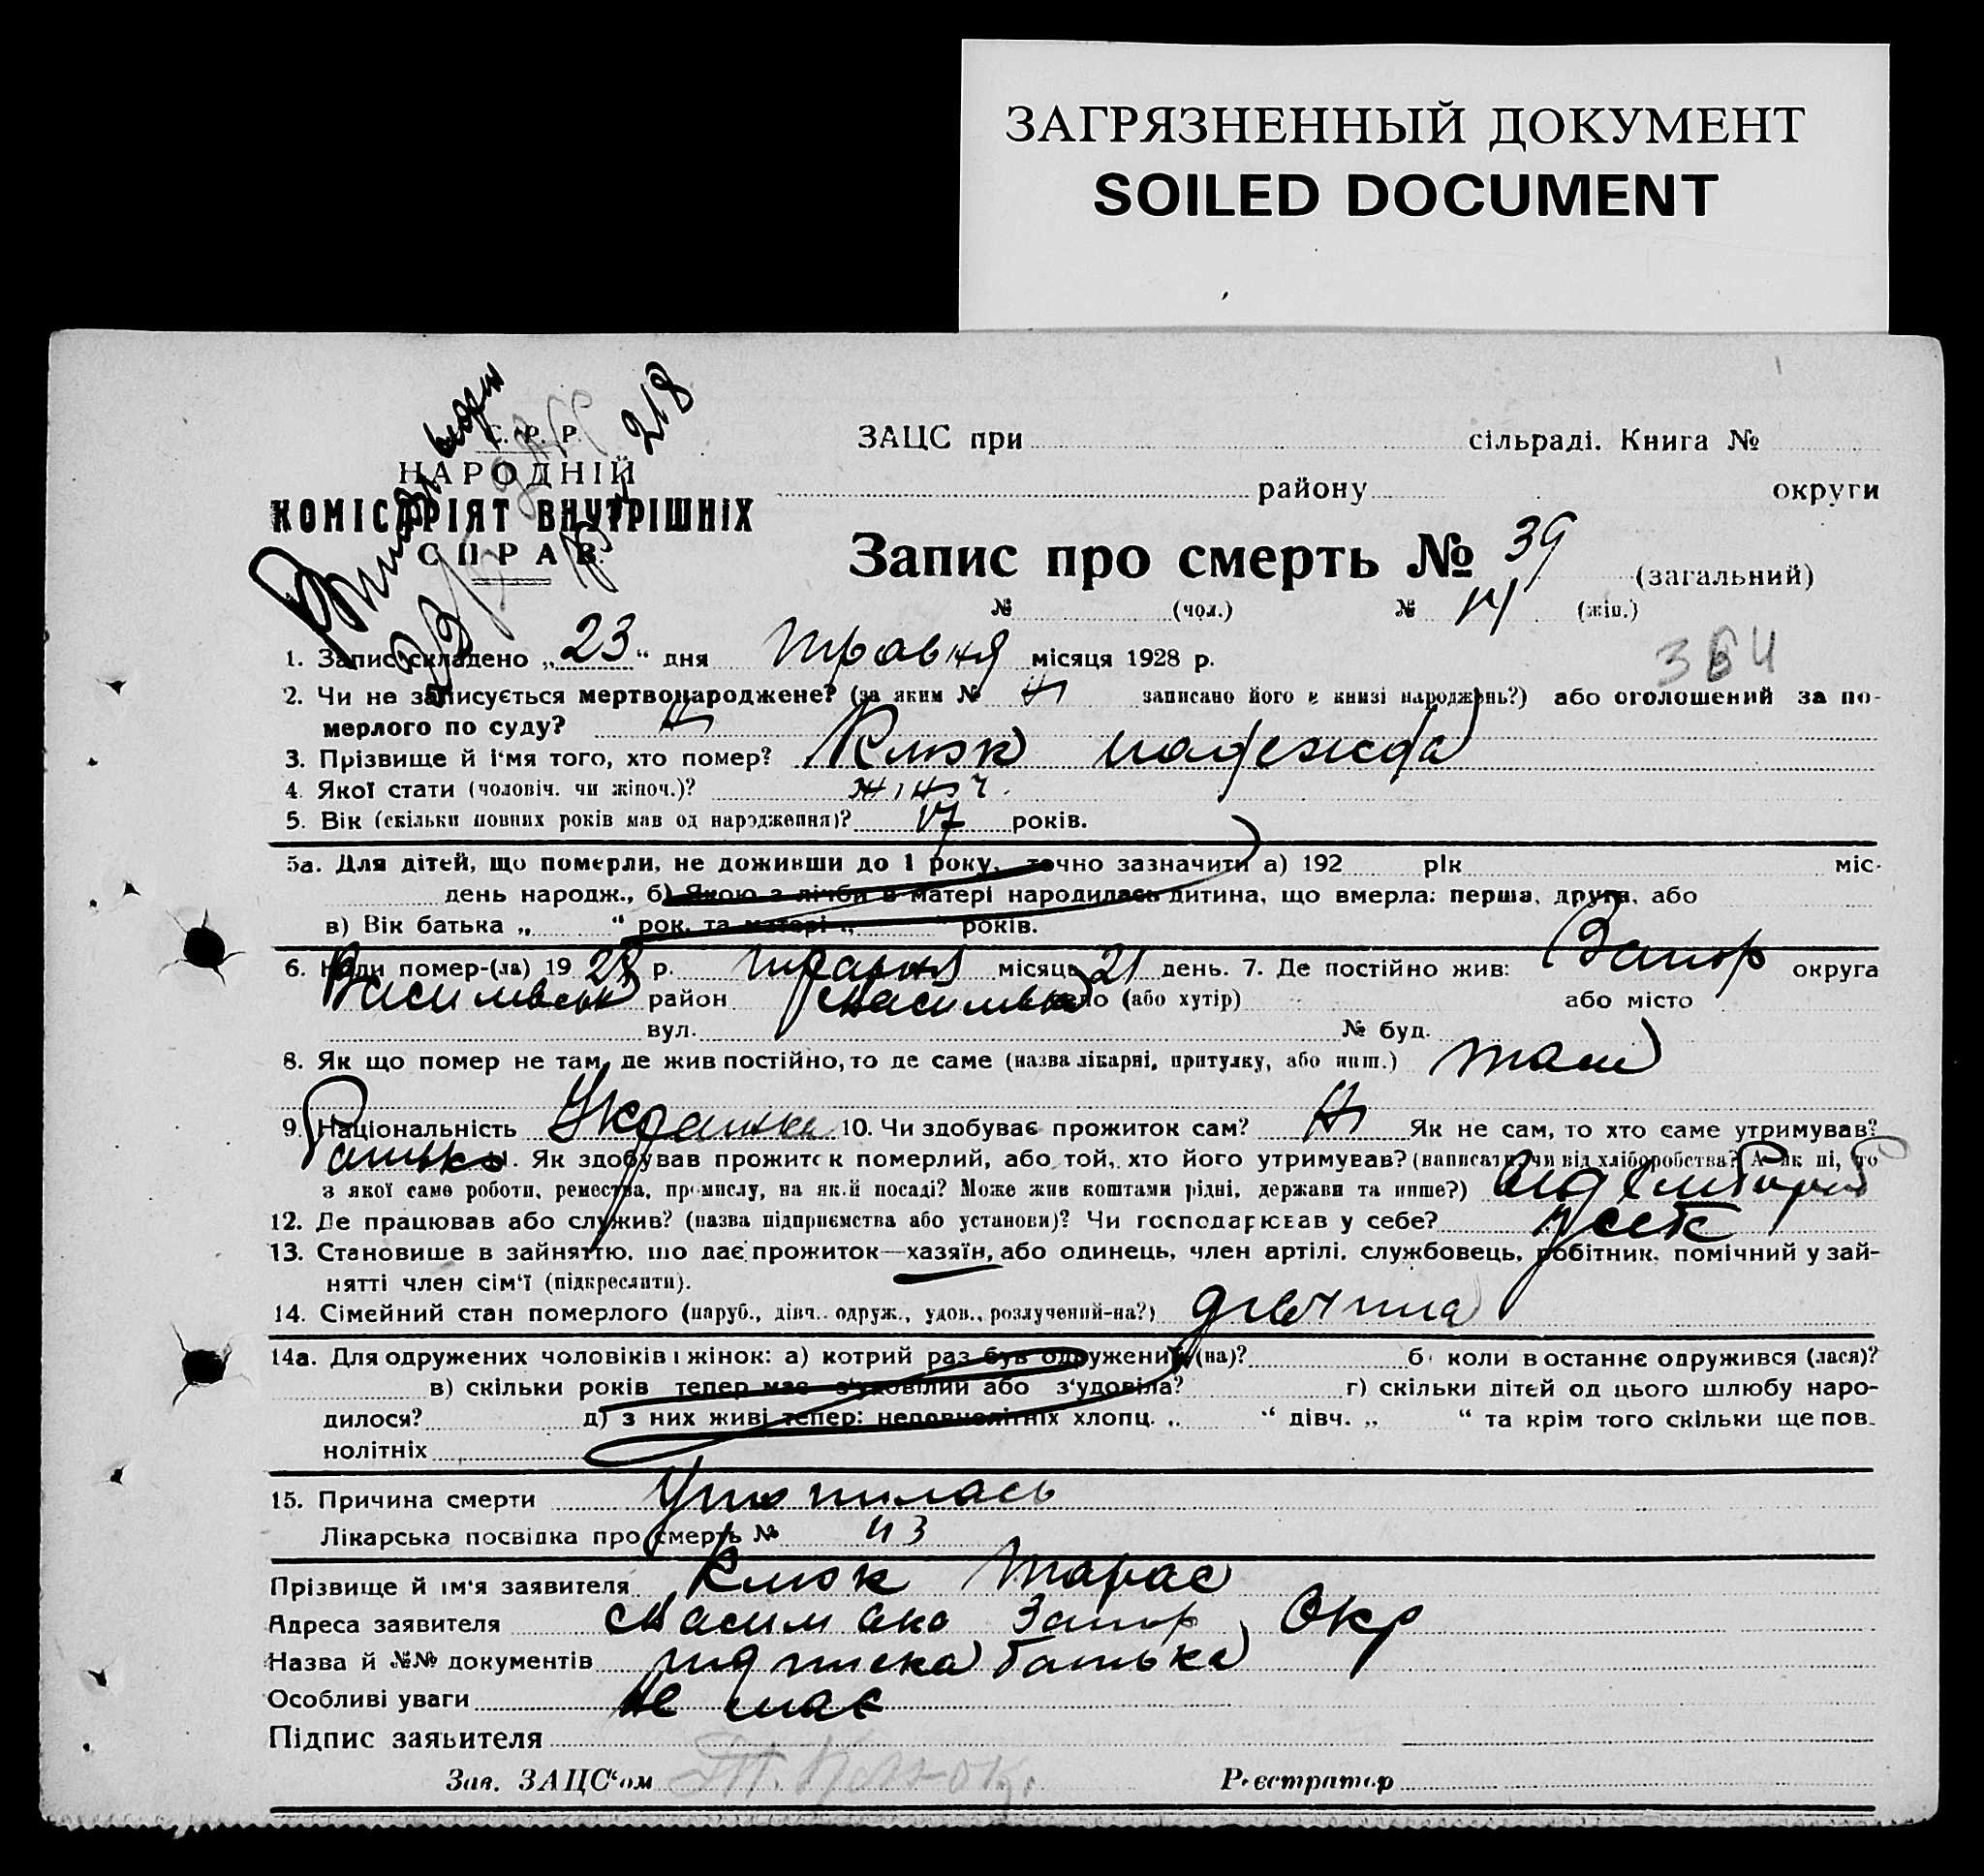 ЗАГРЯЗНЕННЫЙ ДОКУМЕНТ
SOILED DOCUMENT
С. Р. Р.
НАРОДНІЙ
КОМІСАРІЯТ ВНУТРІШНІХ
СПРАВ.
218
ЗАЦС при сільраді. Книга №
району округи
Запис про смерть № 39 (загальний)
№ (чол.) № 14 (жін.)
364
1. Запис складено „23“ дня травня місяця 1928 р.
2. Чи не записується мертвонароджене? (за яким № ні записано його в книзі народжень?) або оголошений за по-
мерлого по суду? ні
3. Прізвище й ім'я того, хто помер? Клюк Надежда
4. Якої стати (чоловіч. чи жіноч.)? жіноч.
5. Вік (скільки повних років мав од народження)? 17 років.
5а. Для дітей, що померли, не доживши до 1 року, точно зазначити а) 192 рік міс.
день народж., б) Якою з лічби в матері народилась дитина, що вмерла: перша, друга, або
в) Вік батька „ “ рок. та матері „ “ років.
6. Коли помер-(ла) 1928 р. травня місяця 21 день. 7. Де постійно жив: Запор округа
Васильвськ район с Василівка село (або хутір) або місто
вул. № буд.
8. Як що помер не там, де жив постійно, то де саме (назва лікарні, притулку, або инш.) там
9. Національність Украинка 10. Чи здобуває прожиток сам? ні Як не сам, то хто саме утримував?
батько 11. Як здобував прожиток померлий, або той, хто його утримував? (написати, чи від хліборобства? А як ні, то
з якої саме роботи, ремества, промислу, на якій посаді? Може жив коштами рідні, держави та инше?) від хлібороб
12. Де працював або служив? (назва підприємства або установи)? Чи господарював у себе? у себе
13. Становище в зайняттю, що дає прожиток—хазяїн, або одинець, член артілі, службовець, робітник, помічний у зай-
нятті член сім'ї (підкреслити).
14. Сімейний стан померлого (паруб., дівч. одруж., удов., розлучений-на?) дівчина
14а. Для одружених чоловіків і жінок: а) котрий раз був одружений (на)? б) коли востаннє одружився (лася)?
в) скільки років тепер має з'удовілий або з'удовіла? г) скільки дітей од цього шлюбу наро-
дилося? д) з них живі тепер: неповнолітніх хлопц. „ “ дівч. „ “ та крім того скільки ще пов-
нолітніх
15. Причина смерти Утопилась
Лікарська посвідка про смерть № 43
Прізвище й ім'я заявителя Клюк Тарас
Адреса заявителя с Василівка Запор. Окр
Назва й №№ документів підписка батька
Особливі уваги не має
Підпис заявителя
Зав. ЗАЦС'ом Реєстратор